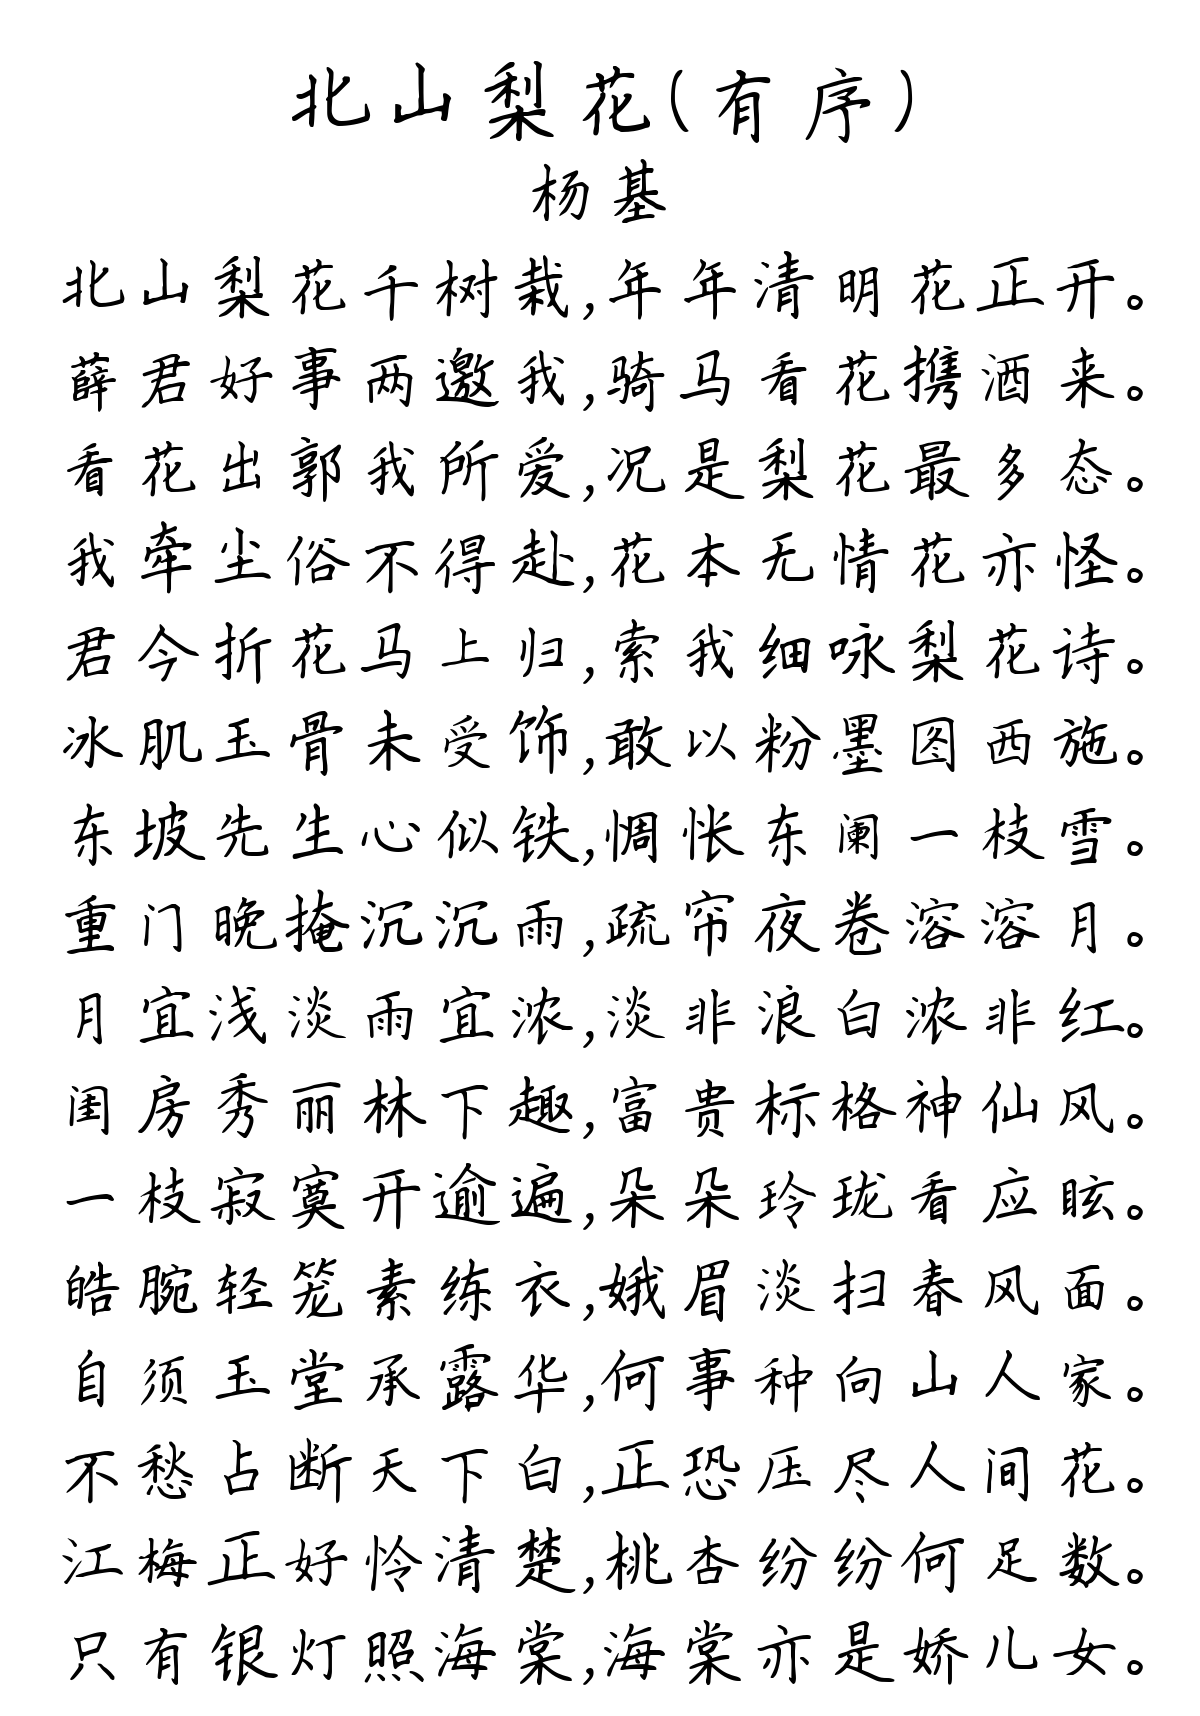 北山梨花(有序)
杨基
北山梨花千树栽,年年清明花正开。
薛君好事两邀我,骑马看花携酒来。
看花出郭我所爱,况是梨花最多态。
我牵尘俗不得赴,花本无情花亦怪。
君今折花马上归,索我细咏梨花诗。
冰肌玉骨未受饰,敢以粉墨图西施。
东坡先生心似铁,惆怅东阑一枝雪。
重门晚掩沉沉雨,疏帘夜卷溶溶月。
月宜浅淡雨宜浓,淡非浪白浓非红。
闺房秀丽林下趣,富贵标格神仙风。
一枝寂寞开逾遍,朵朵玲珑看应眩。
皓腕轻笼素练衣,娥眉淡扫春风面。
自须玉堂承露华,何事种向山人家。
不愁占断天下白,正恐压尽人间花。
江梅正好怜清楚,桃杏纷纷何足数。
只有银灯照海棠,海棠亦是娇儿女。